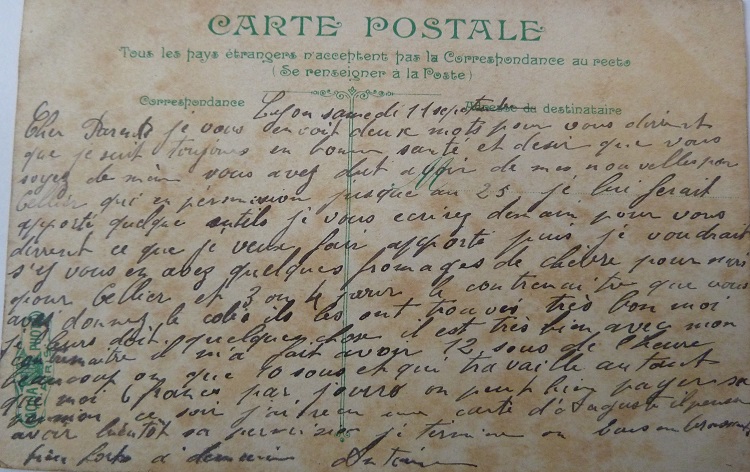 CARTE POSTALE
Tous les pays étrangers n'acceptent pas la Correspondance au recto
(Se renseigner à la Poste)
Correspondance
Adresse du destinataire
Lyon samedi 11 septembre
Cher Parents je vous envoit deux mots pour vous dirent
que je suit toujours en bonne santé et desir que vous
soyez de même vous avez dut avoir de mes nouvelles par
Cellier qui en permission jusque au 25 je lui ferait
apporté quelque outils je vous ecrirez demain pour vous
dirent ce que je veux fair apporté puis je voudrait
s'y vous en avez quelques fromages de chèvre pour
pour Cellier et 3 ou 4 pour le contremaitre que vous
avez donnez le colis ils les ont trouvés très bon moi
je leurs doit quelque chose il est très bien avec mon
contremaitre il m'a fait avoir 12 sous de l'heure
beaucoup on que 10 sous et qui travaille autant
que moi 6 francs par jours on peut bien payer sa
pension ce soir j'ai reçu une carte d'Auguste il pense
avoir bientôt sa permission je termine en vous embrassant
bien forts a demain Antoine